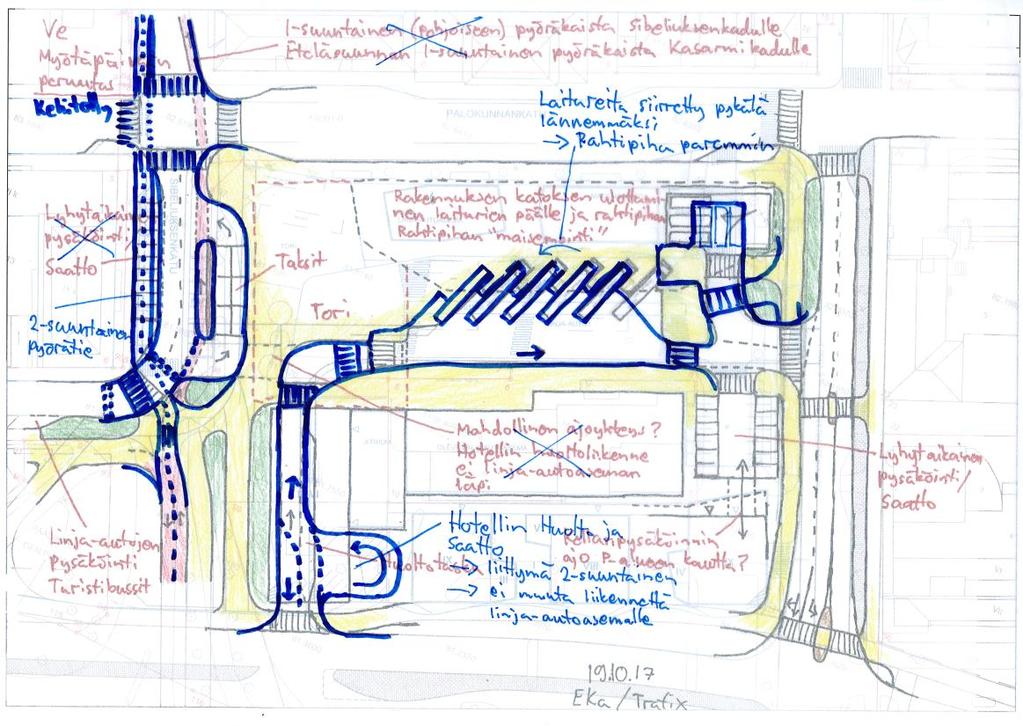 Ve
Myötäpäivään
peruutus
Kehitelty
1-suuntainen (pohjoiseen) pyöräkaista Sibeliuksenkadulle
Eteläsuunnan 1-suuntainen pyöräkaista Kasarmikadulle
Laitureita siirretty pykälä
lännemmäksi
→ Rahtipiha paremmin
PALOKUNNANKATU
Rakennuksen katoksen ulottaminen
nen laiturien päälle ja rahtipihan
Rahtipihan "maisemointi"
Lyhytaikainen
pysäköinti
Saatto
SIBELIUKSENKATU
Taksit
Tori
2-suuntainen
pyörätie
Mahdollinen ajoyhteys?
Hotellin huoltoliikenne
ei linja-autoaseman
läpi
Lyhytaikainen
pysäköinti/
Saatto
Linja-autojen
pysäköinti
Turistibussit
Hotellin Huolto ja
Saatto
→ liittymä 2-suuntainen
→ ei muuta liikennettä
linja-autoasemalle
ajo P-alueen kautta?
19.10.17
EKa / Trafix